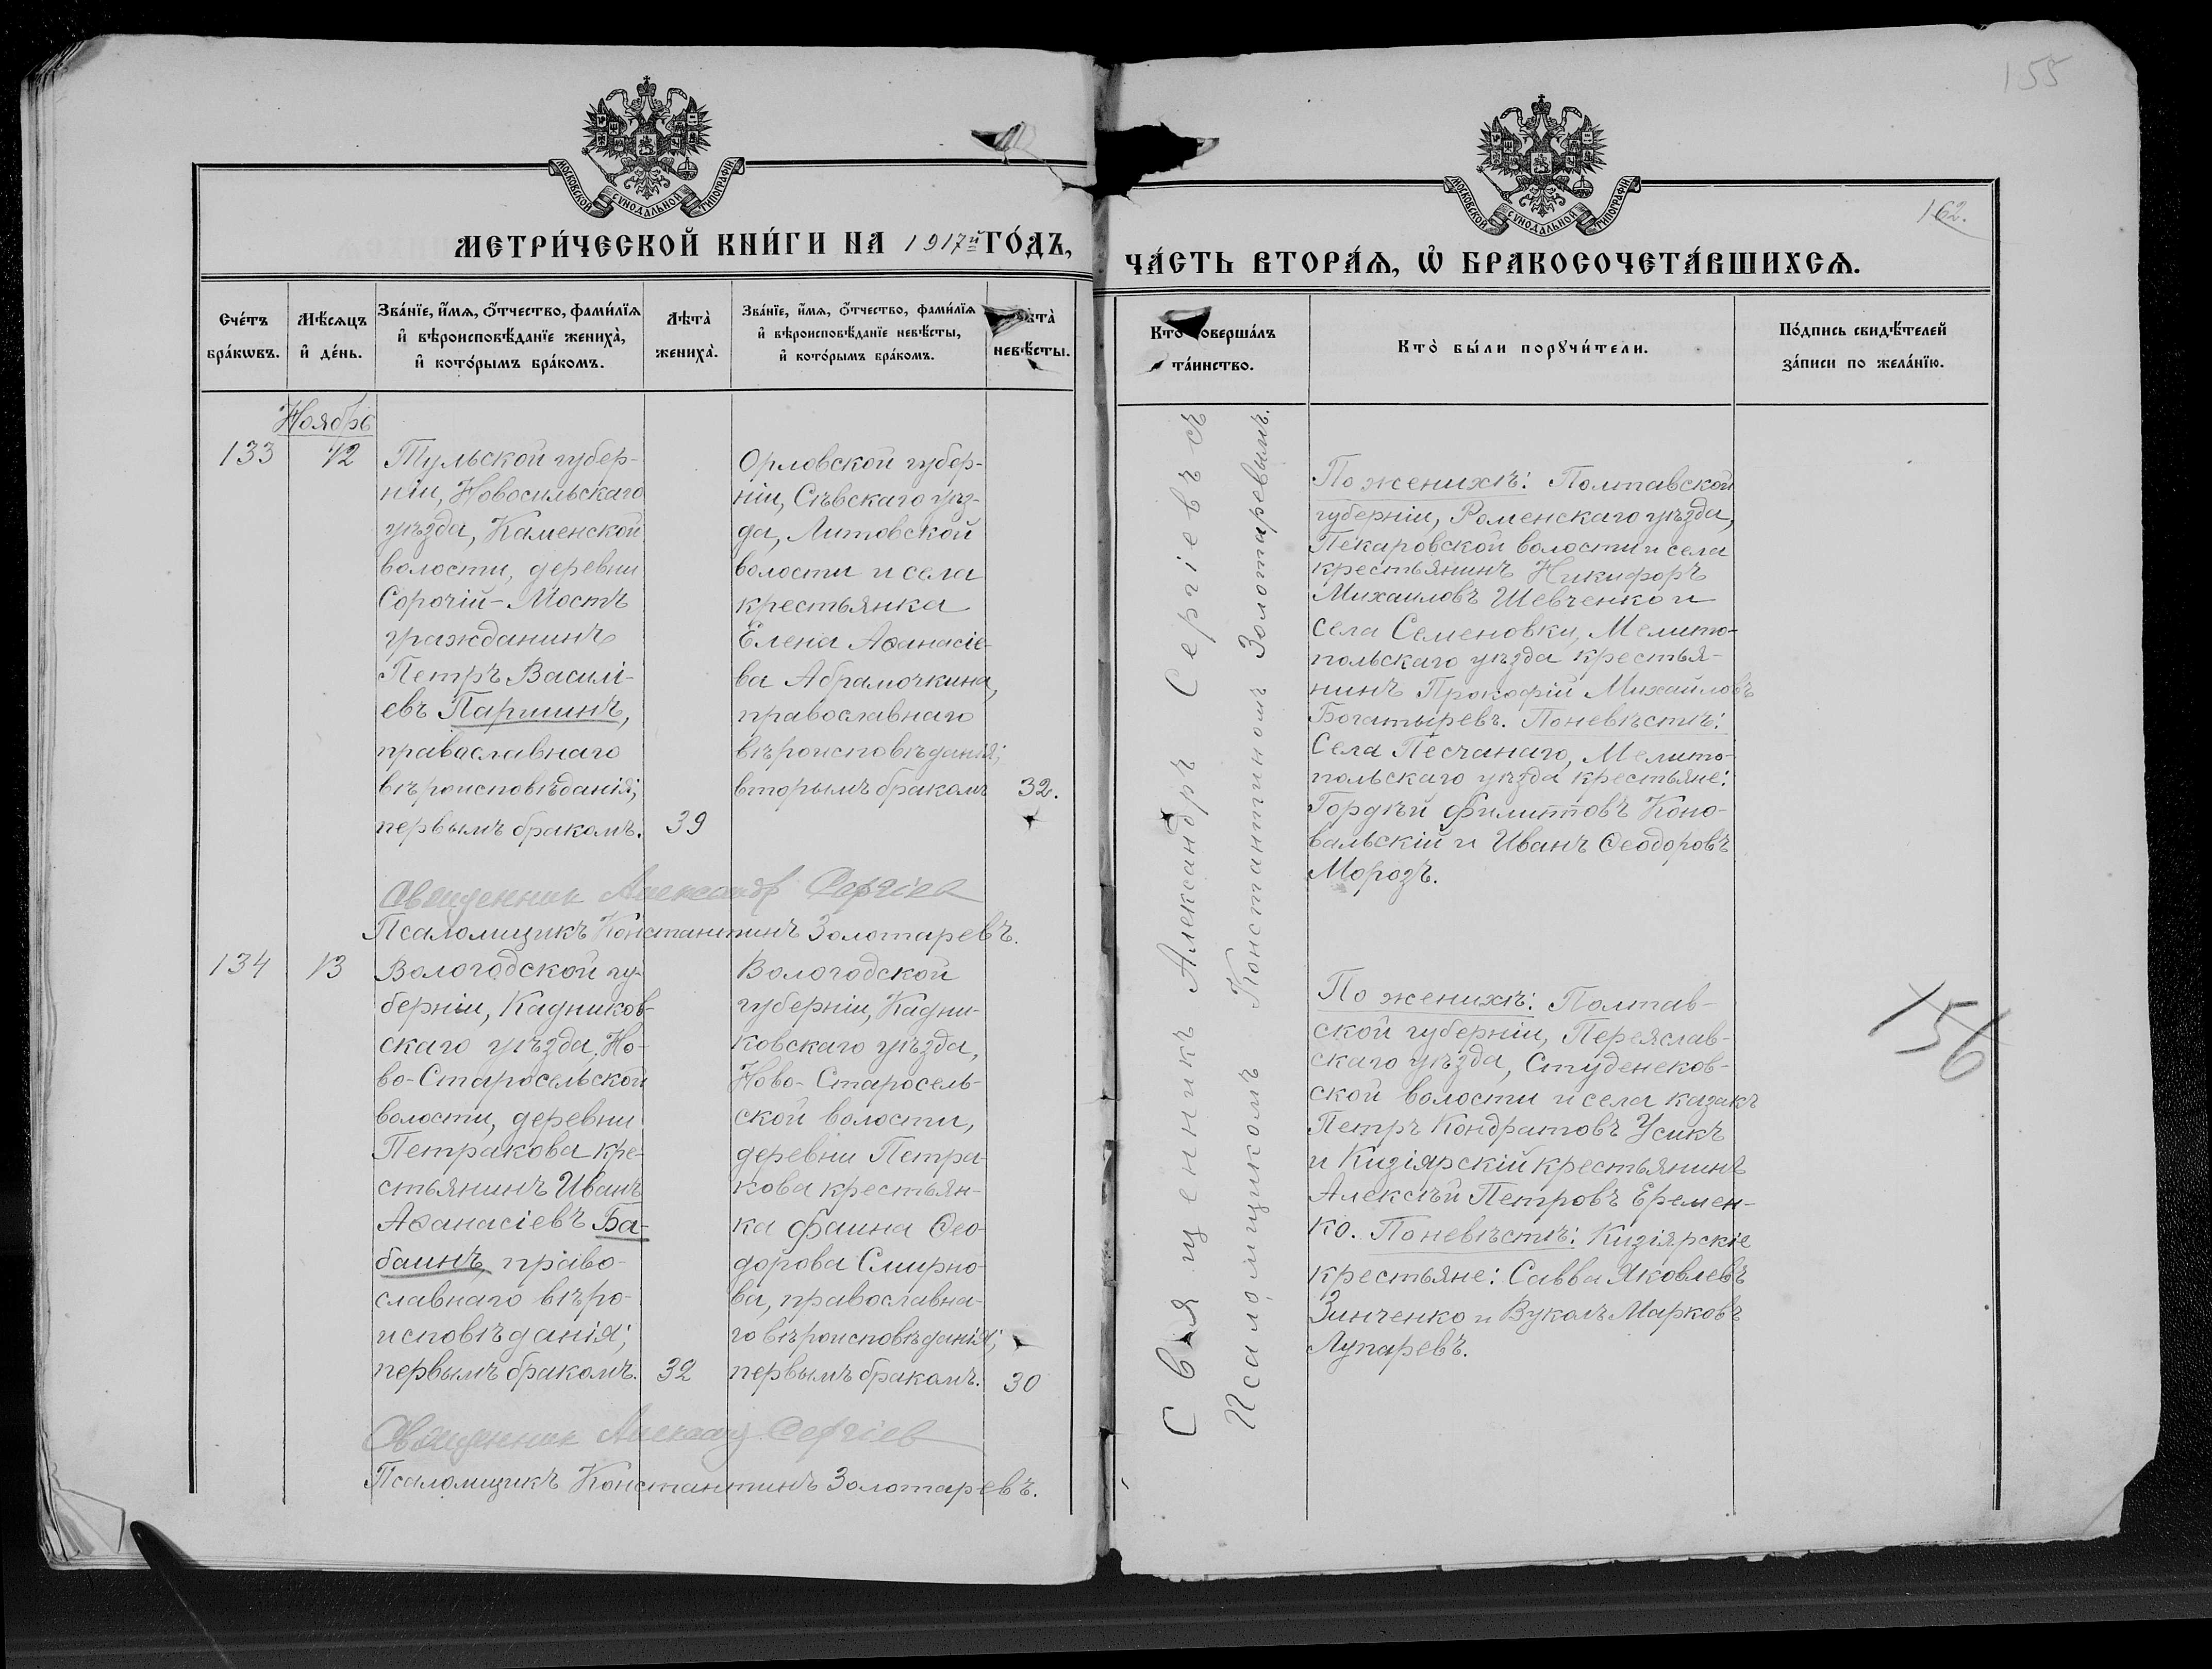 155
162.
МОСКОВСКОЙ СѴНОДАЛЬНОЙ ТИПОГРАФІИ
МЕТРИ́ЧЕСКОЙ КНИ́ГИ НА 1917й ГО́ДЪ,
Сче́тъ бра́кѡвъ.
Мѣ́сяцъ и҆ де́нь.
Зва́нїе, и҆́мѧ, ѻ҆́тчество, фами́лїѧ
и҆ вѣроисповѣ́данїе жениха̀,
и҆ кото́рымъ бра́комъ.
Лѣта̀ жениха̀.
Зва́нїе, и҆́мѧ, ѻ҆́тчество, фами́лїѧ
и҆ вѣроисповѣ́данїе невѣ́сты,
и҆ кото́рымъ бра́комъ.
невѣ́сты.
Ноябрь
133
12
Тульской губер-
ніи, Новосильскаго
уѣзда, Каменской
волости, деревни
Сорочій-Мостъ
гражданинъ
Петръ Василі-
евъ Паршинъ,
православнаго
вѣроисповѣданія;
первымъ бракомъ.
39
Орловской губер-
ніи, Сѣвскаго уѣз-
да, Литовской
волости и села
крестьянка
Елена Аѳанасіе-
ва Абрамочкина,
православнаго
вѣроисповѣданія;
вторымъ бракомъ
32.
Священник Александр Сергіев
Псаломщикъ Константинъ Золотаревъ.
134
13
Вологодской гу-
берніи, Кадников-
скаго уѣзда, Но-
во-Старосельской
волости, деревни
Петракова кре-
стьянинъ Иванъ
Аѳанасіевъ Ба-
баинъ, право-
славнаго вѣро-
исповѣданія;
первымъ бракомъ.
32
Вологодской
губерніи, Кадни-
ковскаго уѣзда,
Ново-Старосель-
ской волости,
деревни Петра-
кова крестьян-
ка Фаина Ѳео-
дорова Смирно-
ва, православна-
го вѣроисповѣданія;
первымъ бракомъ.
30
Священник Александр Сергіев
Псаломщикъ Константинъ Золотаревъ.
МОСКОВСКОЙ СѴНОДАЛЬНОЙ ТИПОГРАФІИ
ЧА́СТЬ ВТОРА́Ѧ, Ѡ҆ БРАКОСОЧЕТА́ВШИХСѦ.
Кто̀ соверша́лъ
та́инство.
Кто̀ бы́ли порꙋчи́тели.
По́дпись свидѣ́телей
за́писи по жела́нїю.
Священникъ Александръ Сергіевъ съ
Псаломщикомъ Константиномъ Золотаревымъ.
По женихѣ: Полтавской
губерніи, Роменскаго уѣзда,
Пекаровской волости и села
крестьянинъ Никифоръ
Михаиловъ Шевченко и
села Семеновки, Мелито-
польскаго уѣзда крестья-
нинъ Прокофій Михайловъ
Богатыревъ. По невѣстѣ:
Села Песчанаго, Мелито-
польскаго уѣзда крестьяне:
Гордѣй Филиповъ Коно-
вальскій и Иванъ Ѳеодоровъ
Морозъ.
По женихѣ: Полтав-
ской губерніи, Переяслав-
скаго уѣзда, Студенеков-
ской волости и села казакъ
Петръ Кондратовъ Усикъ
и Кизіярскій крестьянинъ
Алексѣй Петровъ Еремен-
ко. По невѣстѣ: Кизіярскіе
крестьяне: Савва Яковлевъ
Зинченко и Вуколъ Марковъ
Лупаревъ.
156